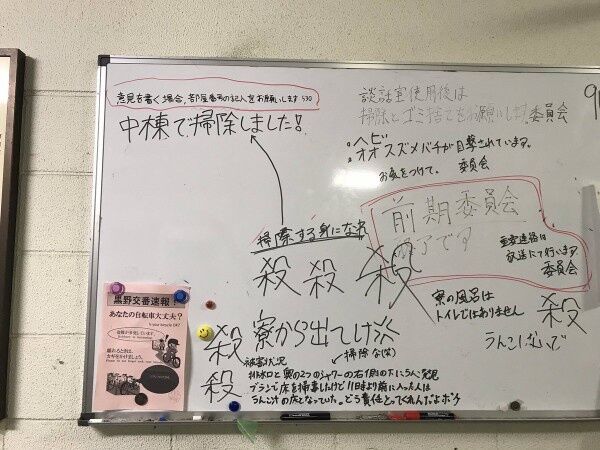 意見を書く場合、部屋番号の記入をお願いします 530
中棟で掃除しました!
談話室使用後は
掃除とゴミ捨てをお願いします 委員会
・ヘビ
・オオスズメバチが目撃されています。
お気をつけて。 委員会
前期委員会
終了です
重要連絡は
放送にて行います。
委員会
掃除する身になれ
殺 殺 殺
寮の風呂は
トイレではありません
殺
うんこ
殺 寮から出てけ
掃除な(な)
殺
被害状況
排水口と奥の2つのシャワーの右側の下にうんこ発見
ブラシで床を掃除したけど11日時より前に入った人は
うんこ汁の床となっていた。どう責任とってくれんだよボケ
黒野交番速報!
あなたの自転車大丈夫?
Is your bicycle OK?